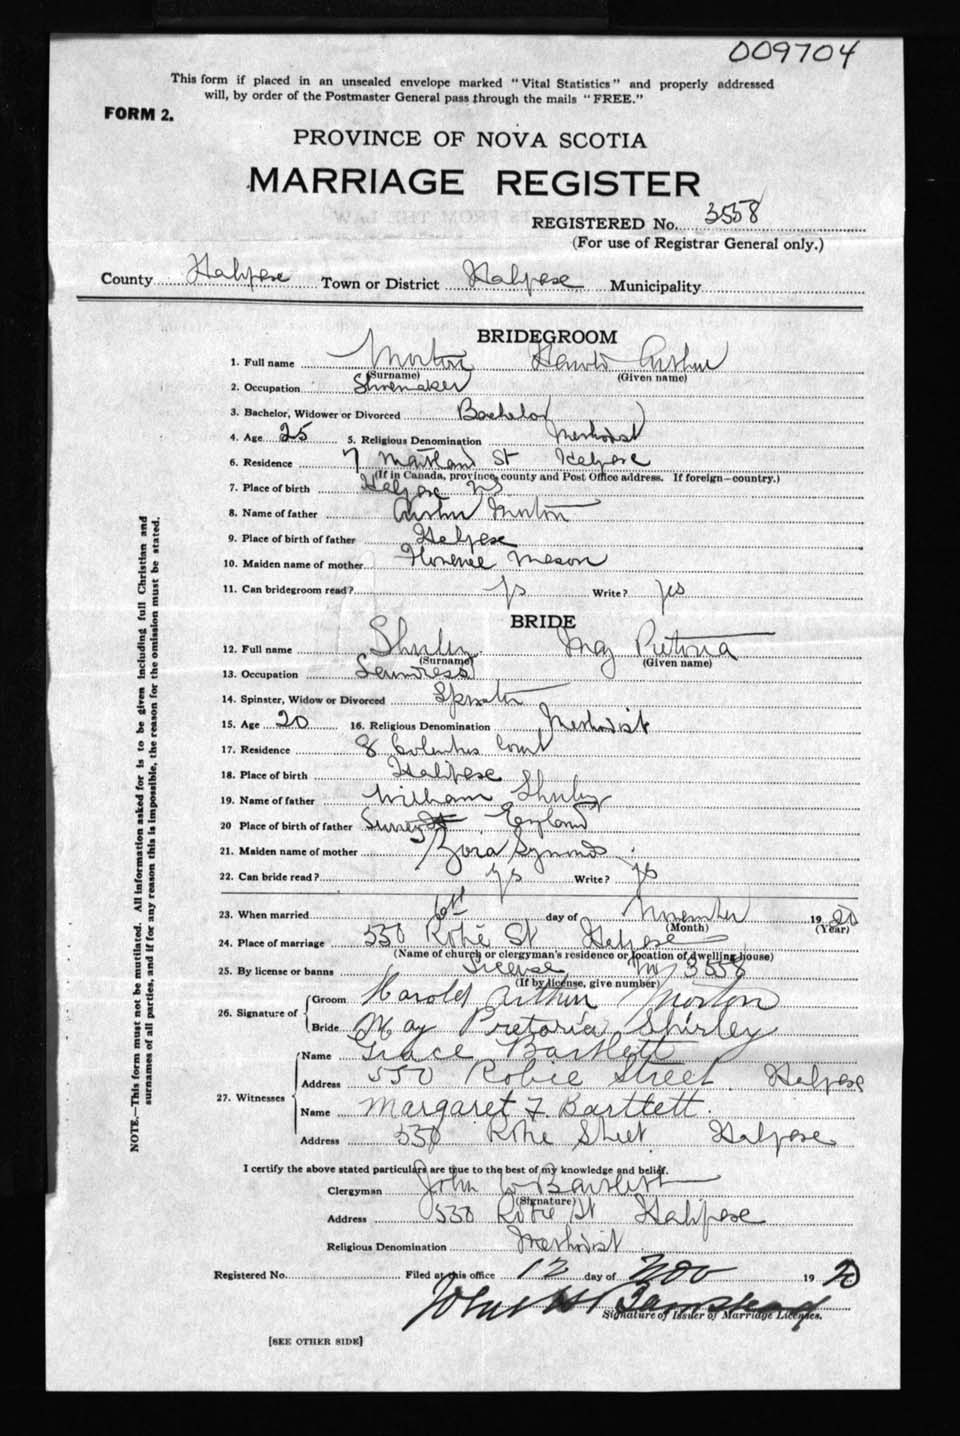 009704
This form if placed in an unsealed envelope marked "Vital Statistics" and properly addressed
will, by order of the Postmaster General pass through the mails "FREE."
FORM 2.
PROVINCE OF NOVA SCOTIA
MARRIAGE REGISTER
REGISTERED No. 3558
(For use of Registrar General only.)
County Halifax Town or District Halifax Municipality
BRIDEGROOM
1. Full name Morton Harold Arthur
(Surname) (Given name)
2. Occupation Shoemaker
3. Bachelor, Widower or Divorced Bachelor
4. Age 25 5. Religious Denomination Methodist
6. Residence 7 Maitland St Halifax
(If in Canada, province, county and Post Office address. If foreign—country.)
7. Place of birth Halifax NS
8. Name of father Arthur Morton
9. Place of birth of father Halifax
10. Maiden name of mother Florence Mason
11. Can bridegroom read? yes Write? yes
BRIDE
12. Full name Shirley May Pretoria
(Surname) (Given name)
13. Occupation
14. Spinster, Widow or Divorced Spinster
15. Age 20 16. Religious Denomination Methodist
17. Residence 8 Court
18. Place of birth Halifax
19. Name of father William Shirley
20 Place of birth of father Surrey England
21. Maiden name of mother Symonds
22. Can bride read? yes Write? yes
23. When married 6th day of November 1920
(Month) (Year)
24. Place of marriage 530 Robie St Halifax
(Name of church or clergyman's residence or location of dwelling house)
25. By license or banns License No 3558
(If by license, give number)
26. Signature of
Groom Harold Arthur Morton
Bride May Pretoria Shirley
27. Witnesses
Name Grace Bartlett
Address 530 Robie Street Halifax
Name Margaret F. Bartlett.
Address 530 Robie Street Halifax
I certify the above stated particulars are true to the best of my knowledge and belief.
Clergyman John W Bartlett
(Signature)
Address 530 Robie St Halifax
Religious Denomination Methodist
Registered No. Filed at this office 12 day of Nov 1920
John H Barnstead
Signature of Issuer of Marriage Licenses.
[SEE OTHER SIDE]
NOTE.—This form must not be mutilated. All information asked for is to be given including full Christian and
surnames of all parties, and if for any reason this is impossible, the reason for the omission must be stated.